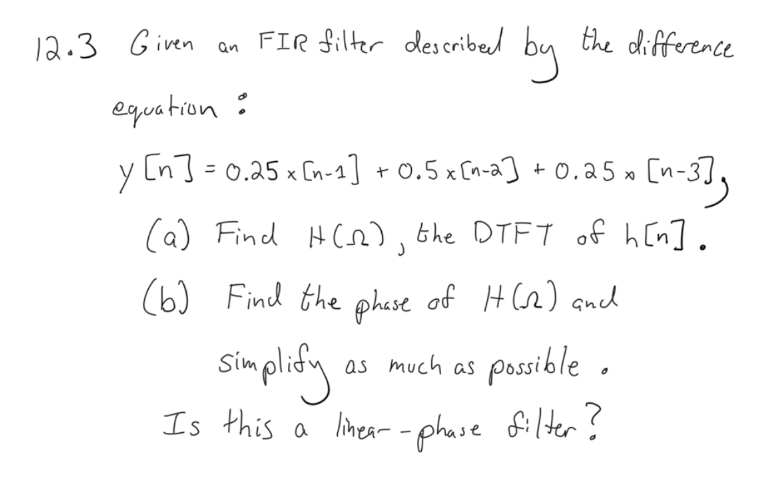 12.3 Given an FIR filter described by the difference
equation:
y[n] = 0.25x[n-1] + 0.5x[n-2] + 0.25x[n-3],
(a) Find H(Ω), the DTFT of h[n].
(b) Find the phase of H(Ω) and
simplify as much as possible.
Is this a linear-phase filter?